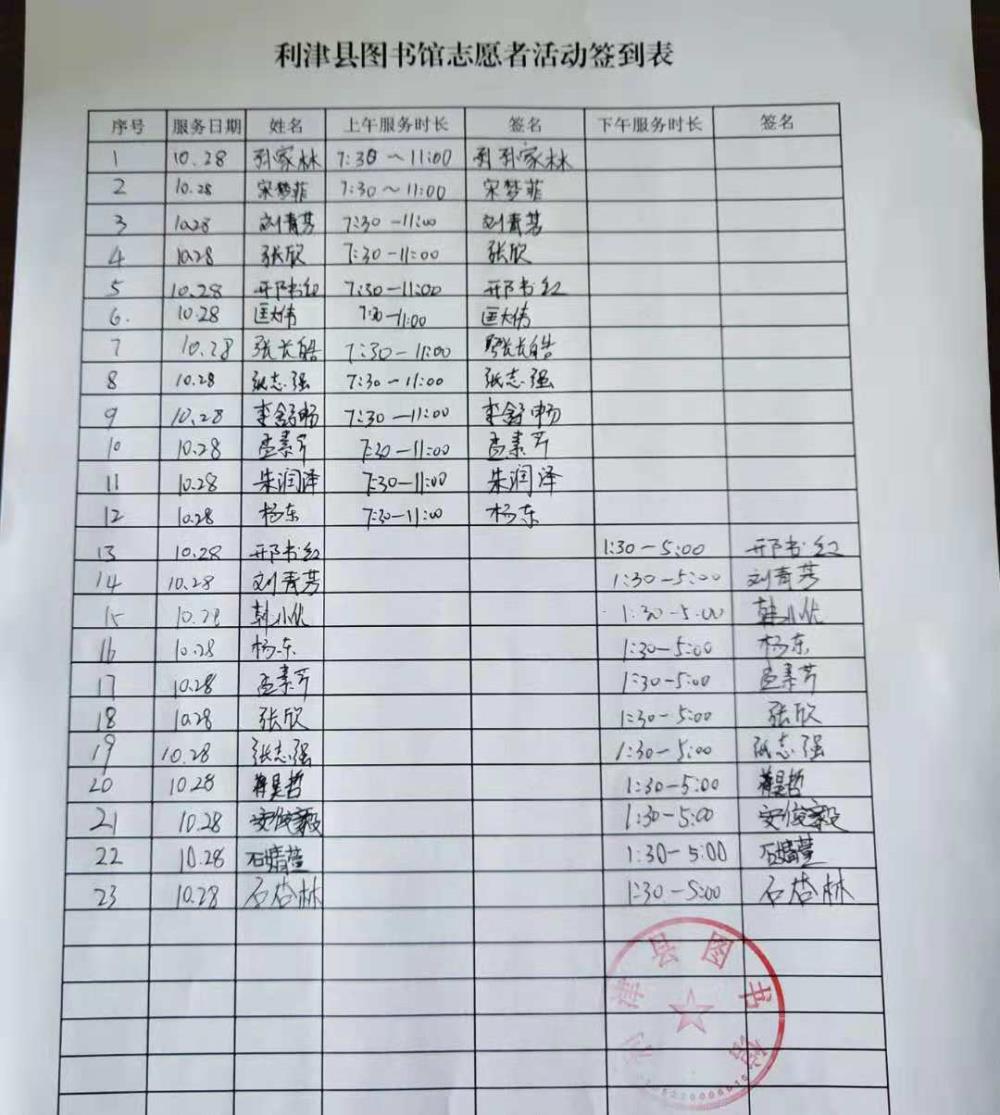 利津县图书馆志愿者活动签到表
序号 服务日期 姓名 上午服务时长 签名 下午服务时长 签名
1 10.28 孙家林 7:30～11:00 孙家林
2 10.28 宋梦菲 7:30～11:00 宋梦菲
3 10.28 刘青芳 7:30-11:00 刘青芳
4 10.28 张欣 7:30-11:00 张欣
5 10.28 邢书红 7:30-11:00 邢书红
6. 10.28 匡大伟 7:30-11:00 匡大伟
7 10.28 张长皓 7:30-11:00 张长皓
8 10.28 张志强 7:30-11:00 张志强
9 10.28 李舒畅 7:30-11:00 李舒畅
10 10.28 孟素芹 7:30-11:00 孟素芹
11 10.28 朱润泽 7:30-11:00 朱润泽
12 10.28 杨东 7:30-11:00 杨东
13 10.28 邢书红 1:30-5:00 邢书红
14 10.28 刘青芳 1:30-5:00 刘青芳
15 10.28 韩小优 1:30-5:00 韩小优
16 10.28 杨东 1:30-5:00 杨东
17 10.28 孟素芹 1:30-5:00 孟素芹
18 10.28 张欣 1:30-5:00 张欣
19 10.28 张志强 1:30-5:00 张志强
20 10.28 1:30-5:00
21 10.28 安俊毅 1:30-5:00 安俊毅
22 10.28 石婧萱 1:30-5:00 石婧萱
23 10.28 石杏林 1:30-5:00 石杏林
利津县图书馆